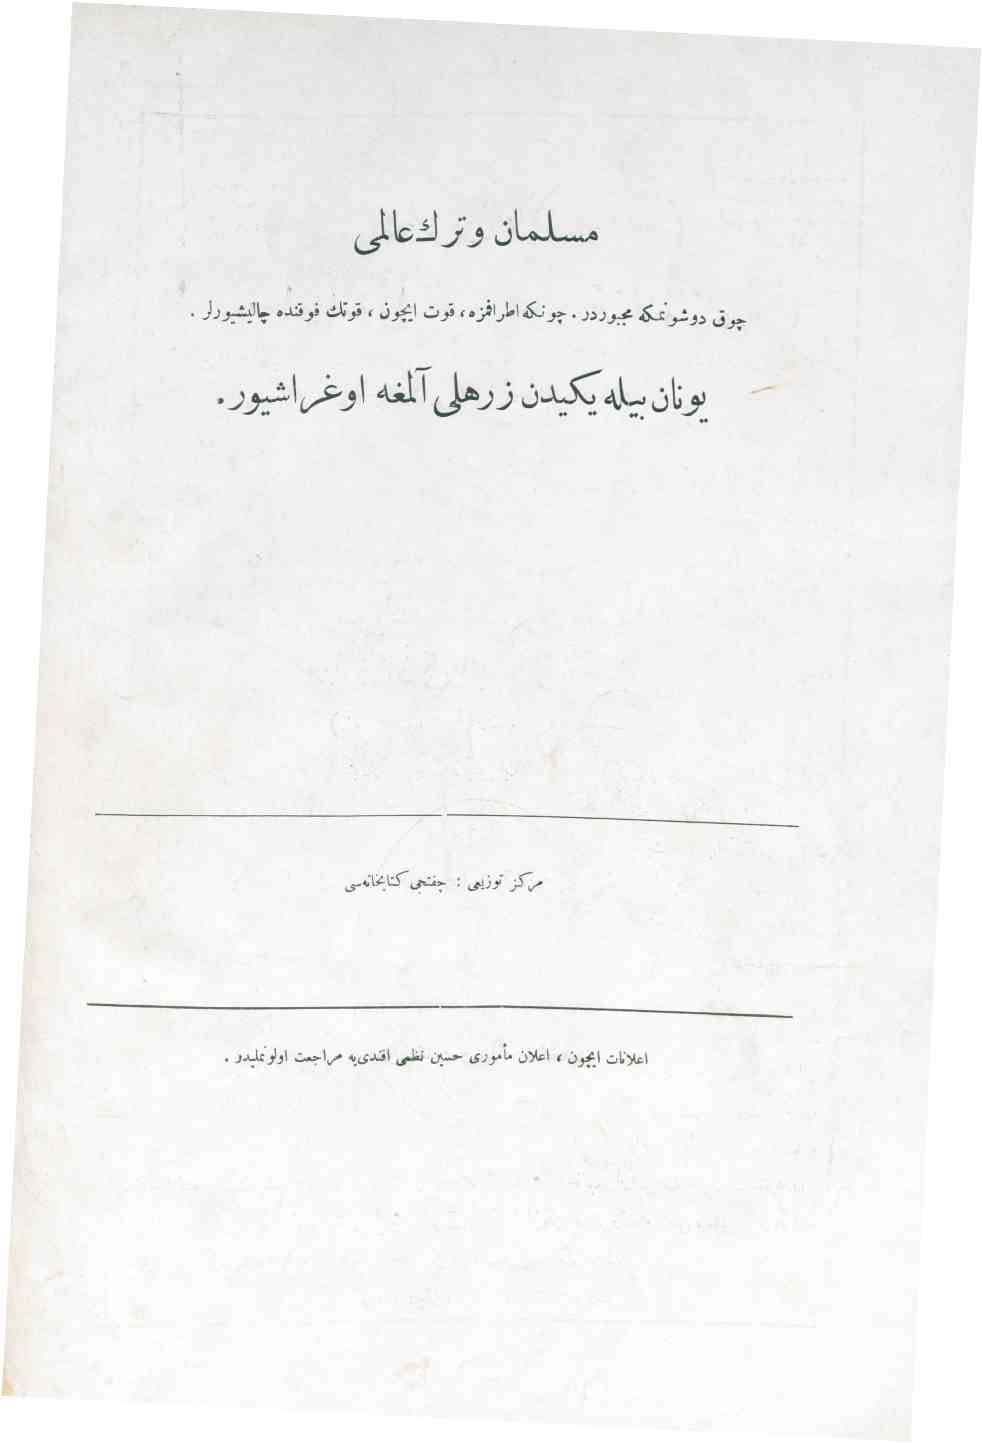 مسلمان و ترك عالمى
چوق دوشونمكه مجبوردر . چونكه اطرافمزه ، قوت ايچون ، قوتك فوقنده چاليشيورلر .
يونان بيله يكيدن زرهلى آلمغه اوغراشيور .
مركز توزيعى : چفتجى كتابخانه‌سى
اعلانات ايچون ، اعلان مأمورى حسين نظمى افندى‌يه مراجعت اولونمليدر .